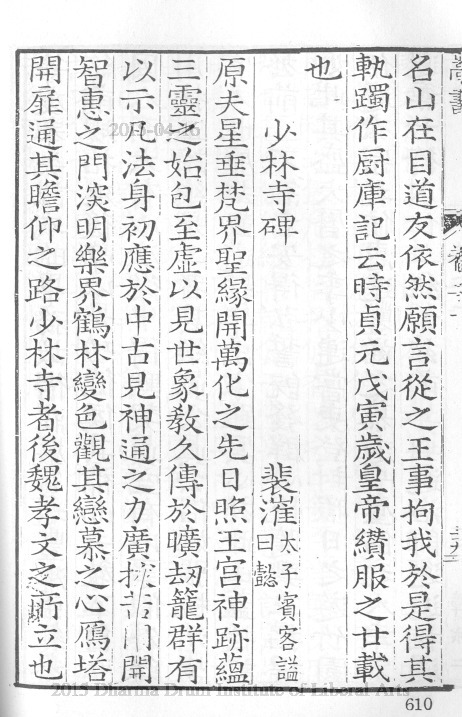 名山在目道友依然願言從之王事拘我於是得其
軌躅作厨庫記云時貞元戊寅歲皇帝纘服之廿載
也
少林寺碑 裴漼太子賓客謚曰懿
原夫星垂梵界聖緣開萬化之先日照王宮神跡蘊
三靈之始包至虛以見世象教久傳於曠刼籠群有
以示凡法身初應於中古見神通之力廣 苦門開
智惠之門深明樂界鶴林變色觀其戀慕之心鴈塔
開扉通其瞻仰之路少林寺者後魏孝文之所立也
2015-04-16
2015 Dharma Drum Institute of Liberal Arts
610